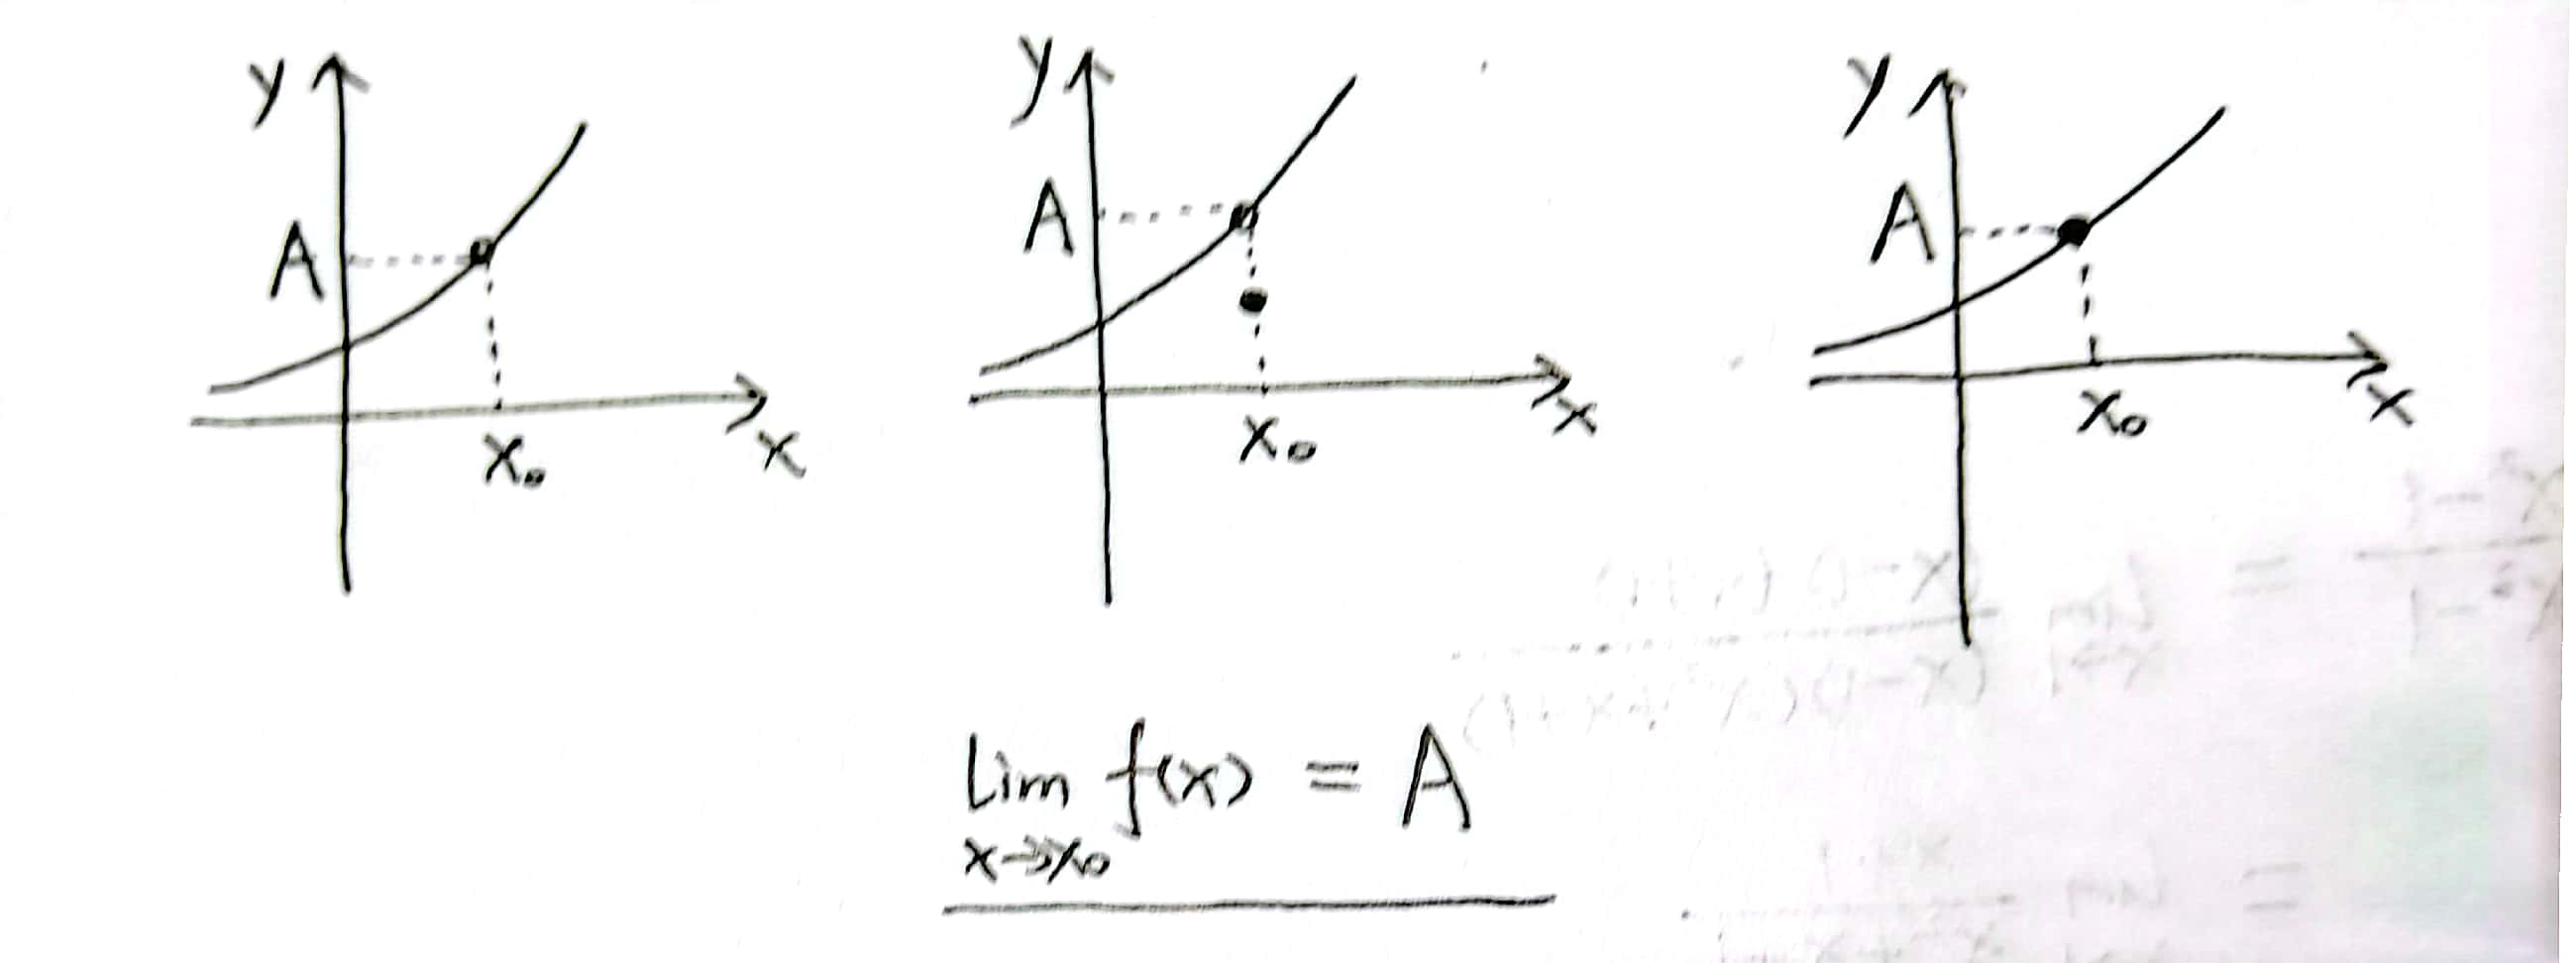 y
A
x₀
x
y
A
x₀
x
y
A
x₀
x
lim f(x) = A
x→x₀